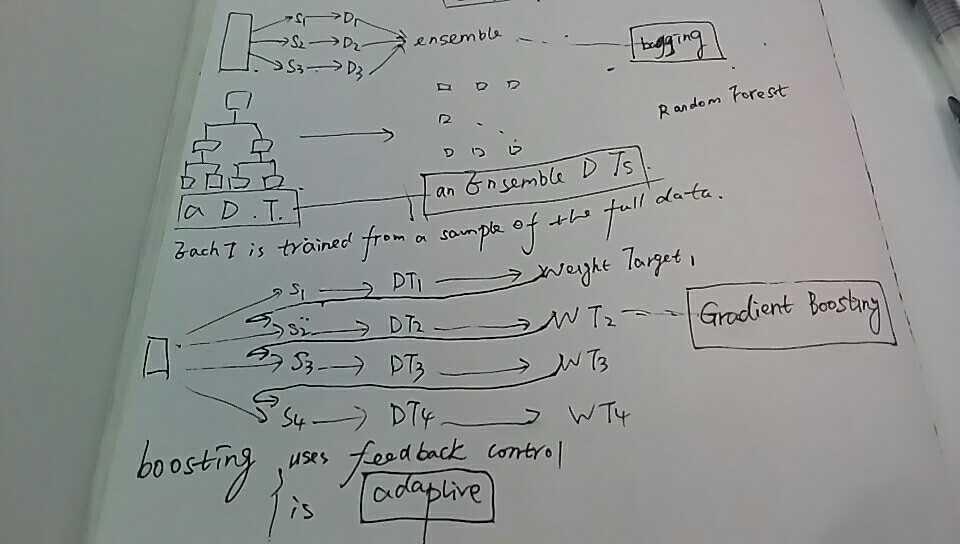 S1 D1
S2 D2 ensemble bagging
S3 D3
Random Forest
a D.T. an Ensemble DTs
Each T is trained from a sample of the full data.
S1 DT1 Weight Target 1
S2 DT2 WT2 Gradient Boosting
S3 DT3 WT3
S4 DT4 WT4
boosting uses feedback control
is adaptive